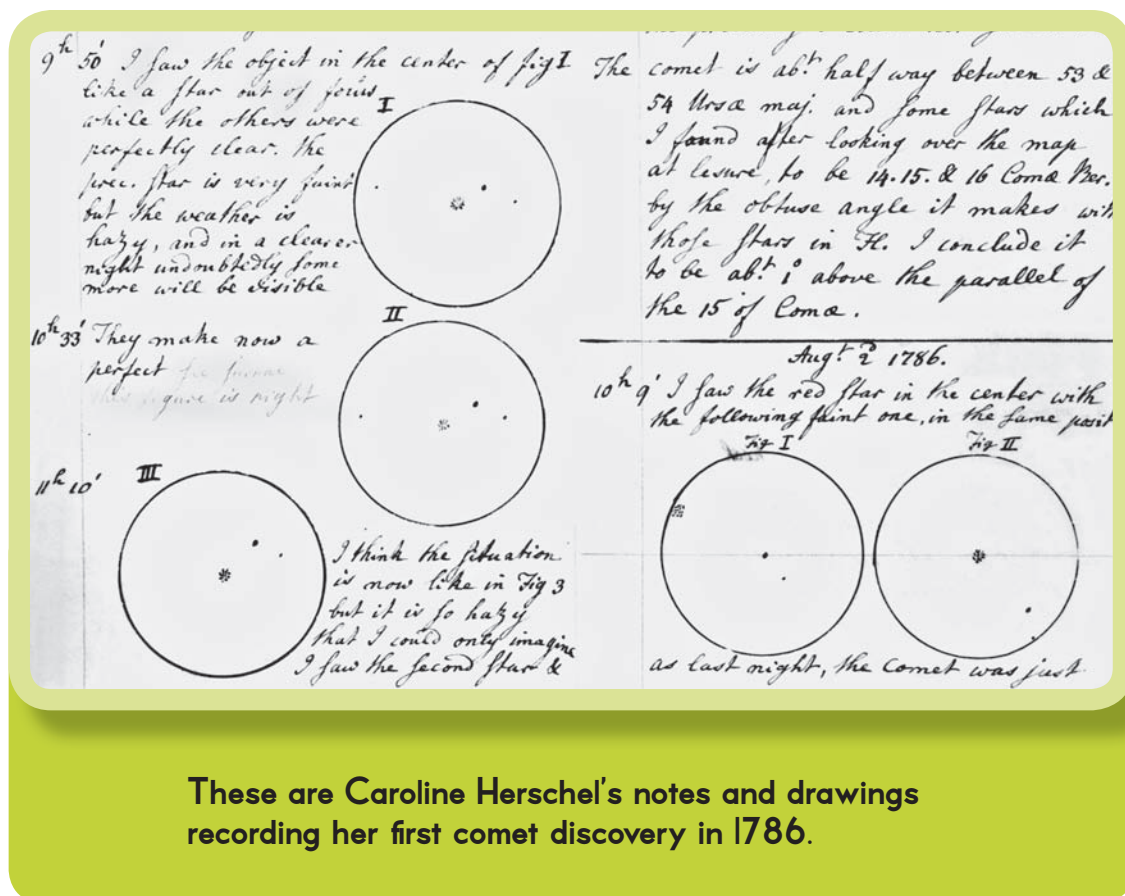 9h 50' I saw the object in the center of fig I
like a star out of focus
while the others were
perfectly clear. the
prec. star is very faint
but the weather is
hazy, and in a clearer
night undoubtedly some
more will be visible
I
II
10h 33' They make now a
perfect
this figure is night
11h 10'
III
I think the situation
is now like in Fig 3
but it is so hazy
that I could only imagine
I saw the second star &
The comet is abt. half way between 53 &
54 Ursæ maj. and some stars which
I found after looking over the map
at lesure, to be 14. 15. & 16 Comæ Ber.
by the obtuse angle it makes with
those stars in Fl. I conclude it
to be abt. 1° above the parallel of
the 15 of Comæ.
Augt. 2 1786.
10h 9' I saw the red star in the center with
the following faint one, in the same posit
Fig I
Fig II
as last night, the Comet was just
These are Caroline Herschel's notes and drawings
recording her first comet discovery in 1786.